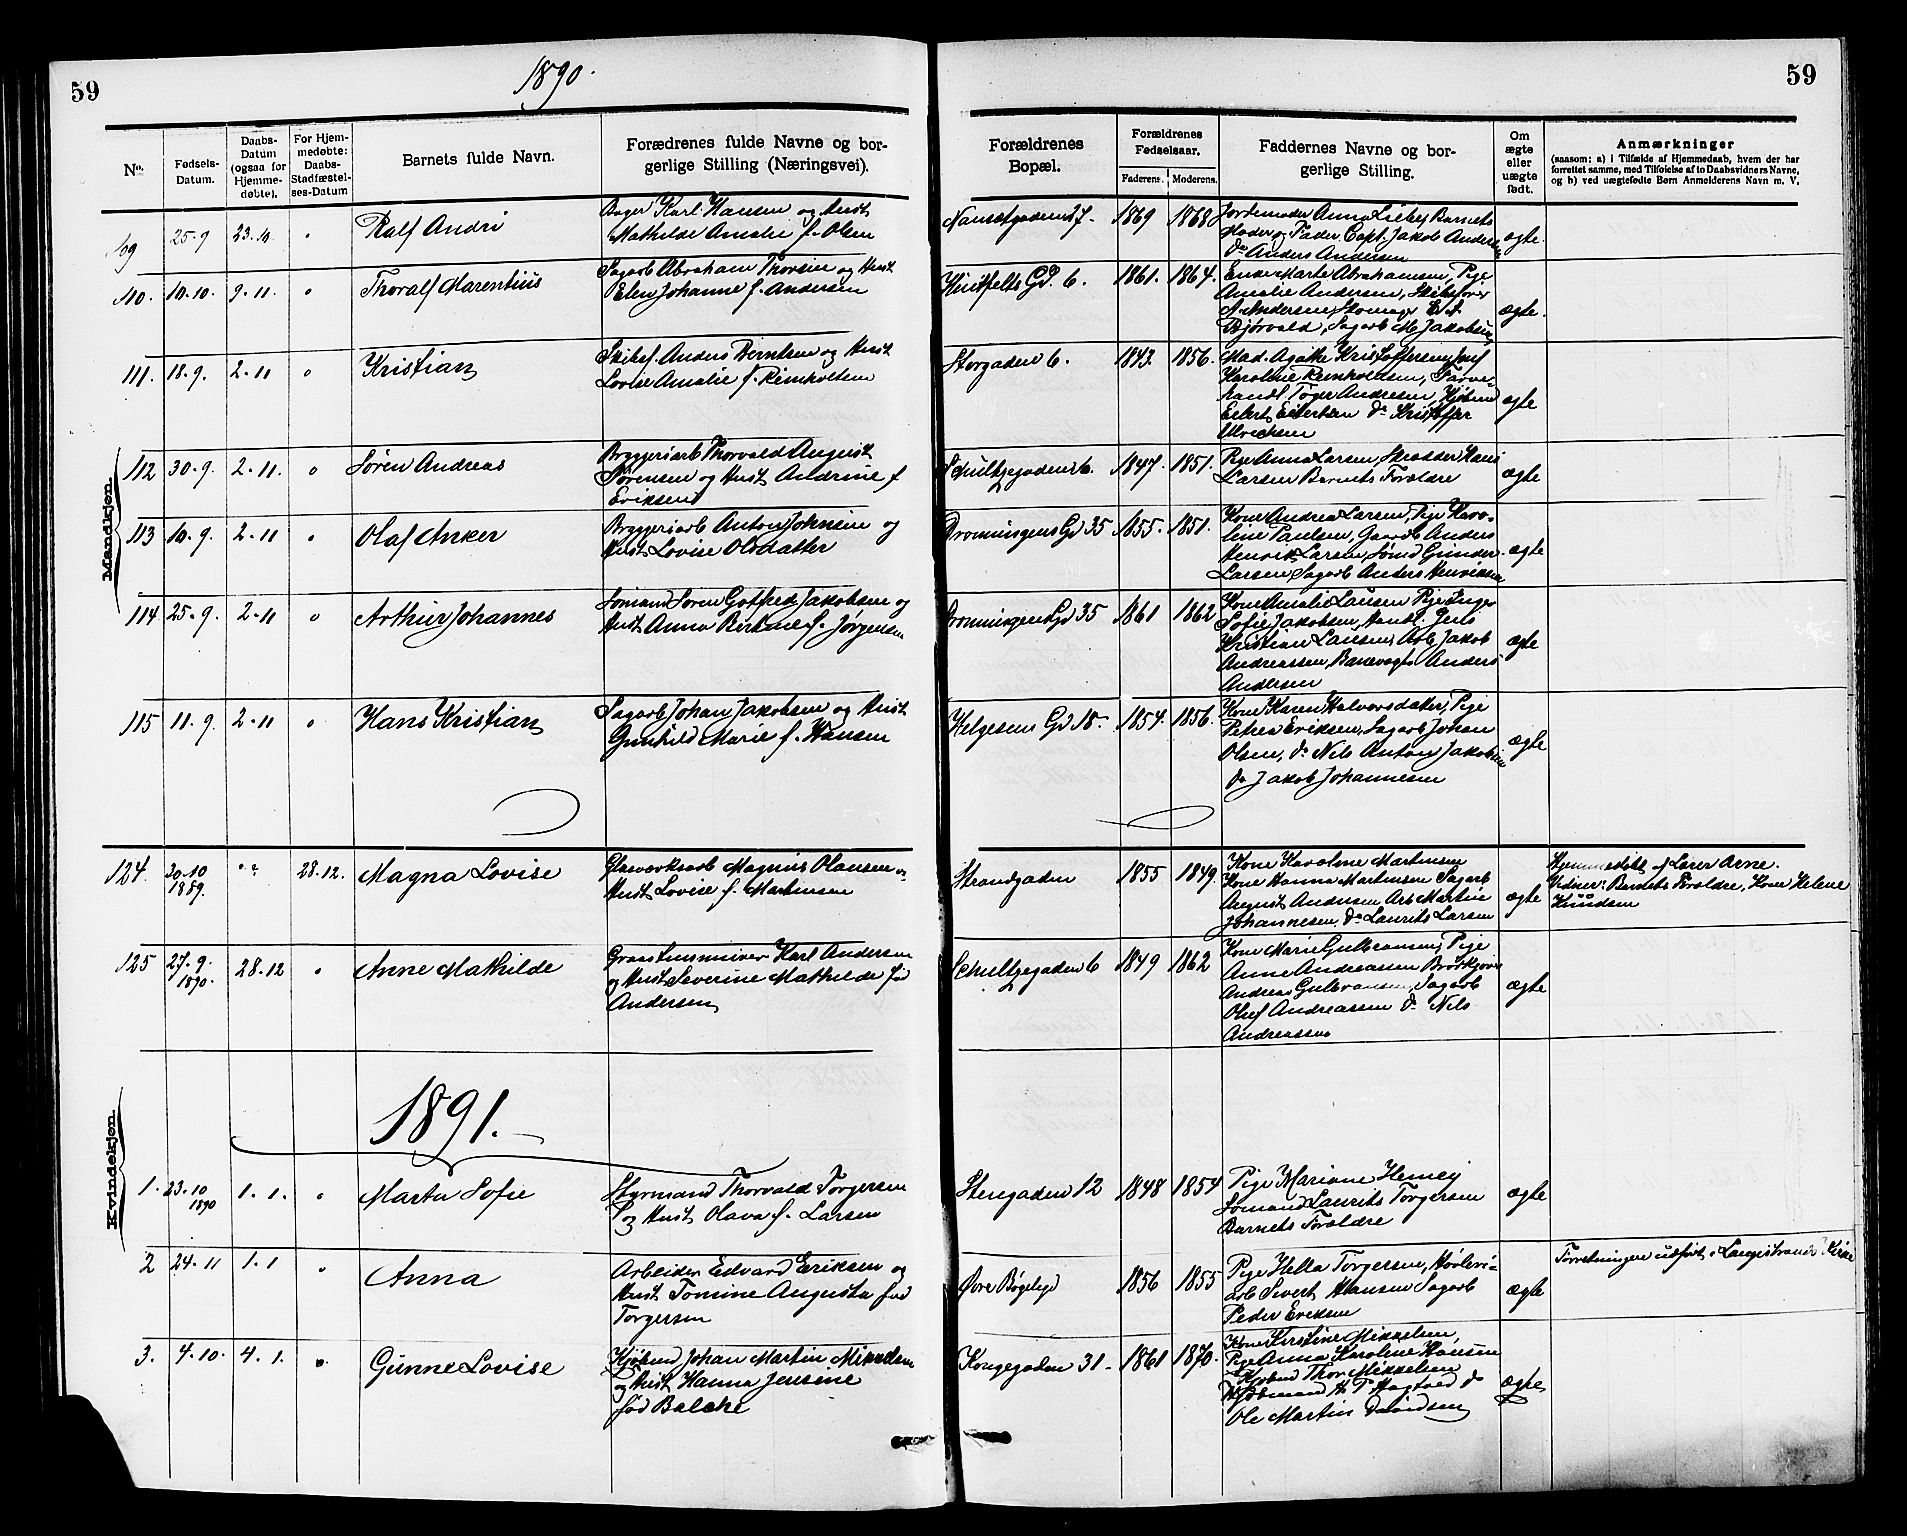 59
1890.
59
No.
Fødsels-
Datum.
Daabs-
Datum
(ogsaa for
Hjemme-
døbte).
For Hjem-
medøbte:
Daabs-
Stadfæstel-
ses-Datum
Barnets fulde Navn.
Forædrenes fulde Navne og bor-
gerlige Stilling (Næringsvei).
Forældrenes
Bopæl.
Forældrenes
Fødselsaar.
Faderens.
Moderens.
Faddernes Navne og bor-
gerlige Stilling.
Om
ægte
eller
uægte
født.
Anmærkninger
(saasom: a) i Tilfælde af Hjemmedaab, hvem der har
forrettet samme, med Tilføielse af to Daabsvidners Navne,
og b) ved uægtefødte Børn Anmelderens Navn m. V.
Mandkjøn.
109 25-9 23.11 " Ralf Andri
Bager Karl Hansen og Hust
Mathilde Amalie f. Olsen
Nansetgaden 27. 1869 1868
Jordemoder Anna Barnets
Moder og Fader, Capt. Jakob Andersen
Do Anders Andersen
ægte.
110. 10-10. 9-11. " Thoralf Marentius
Sagarb Abraham Thorsen og Hust
Elen Johanne f. Andersen
Gd. 6. 1861. 1864.
Enke Marte Abrahamsen, Pige
Amalie Andersen, Skibsfører
A. Andersen, Skomager
Bjørvald, Sagarb M. Jakobsen
ægte.
111. 18-9. 2-11 " Kristian
Skibsf. Anders Berntsen og Hust
Lovise Amalie f. Reinholtsen
Storgaden 6. 1843. 1856.
Mad. Agathe Kristoffersen, Jomf
Karoline Reinholdsen, Farve-
handl. Tøger Andersen, Kjøbmd
Eilert Eilertsen Do Kristoffer
Ulrichsen
ægte
112 30-9. 2-11. " Søren Andreas
Bryggeriarb Thorvald August
Sørensen og Hust Andrine f
Eriksen
Schultzegaden 6. 1847. 1851.
Pige Anna Larsen, Skrædder Hans
Larsen Barnets Forældre
ægte
113 10-9. 2-11 " Olaf Anker
Bryggeriarb Anton Johnsen og
Hust Lovise Olsdatter
Dronningens Gd 35 1855. 1851.
Kone Andrea Larsen, Pige Karo-
line Paulsen, Gaardb Anders
Henrik Larsen, Sømd Gunder
Larsen, Sagarb Anders Henriksen
ægte
114 25-9. 2-11 " Arthur Johannes
Sømand Søren Gotfred Jakobsen og
Hust Anna Birkine f. Jørgensen
Dronningens Gd 35 1861 1862
Kone Amalie Lausen Pige Inger
Sofie Jakobsen, Handl. Jens
Kristian Lausen, Arb. Jakob
Andreassen, Banevogter Anders
Andersen
ægte
115 11-9. 2-11 " Hans Kristian
Sagarb Johan Jakobsen og Hust
Gunhild Marie f. Hansen
Helgesens Gd 18. 1854. 1856.
Kone Karen Halvorsdatter, Pige
Petrea Eriksen, Sagarb Johan
Olsen, Do Nils Anton Jakobsen
Do Jakob Johannesen
ægte
124. 30-10 1889. " 28.12. Magna Lovise
Glasværksarb Magnus Olausen og
Hust Lovise f. Martinsen
Strandgaden 1855 1849.
Kone Karoline Martinsen
Kone Hanna Martinsen Sagarb
August Andersen Arb Martin
Johannesen, Do Laurits Larsen
ægte
Hjemmedøbt af Lærer Arne.
Vidner: Barnets Forældre, Kone Helene
Knudsen
125 27-9. 1890. 28.12 " Anne Mathilde
Graastensmurer Karl Andersen
og Hust Severine Mathilde fød
Andersen
Schultzegaden 6 1849 1862
Kone Marie Gulbransen, Pige
Anne Andreassen Brødkjører
Andreas Gulbransen, Sagarb
Oluf Andreassen Do Nils
Andreassen
ægte
1891.
Kvindekjøn.
1. 23-10 1890 1.1. " Marta Sofie
Styrmand Thorvald Torgersen
og Hust Olava f. Larsen
Stenegaden 12 1848 1854
Pige Mariane
Sømand Laurits Torgersen
Barnets Forældre
ægte
2 24-11 1.1 " Anna
Arbeider Edvard Eriksen og
Hust Tomine Augusta fød
Torgersen
Øvre Bøgeligd 1856 1855
Pige Helta Torgersen, Høvleri-
arb Sivert Hansen Sagarb
Peder Eriksen
ægte
Forretningen udført i Langestrands Kirke
3. 4-10. 4.1. " Gunne Lovise
Kjøbmd Johan Martin Mikkelsen
og Hust Hanna Jensine
fød Balchè
Kongegaden 31. 1861 1870.
Kone Kirstine Mikkelsen,
Pige Anna Karoline Hansen
Kjøbmd Thor Mikkelsen
Kjøbmand H. T. Hagtved do
Ole Martin Davidsen
ægte